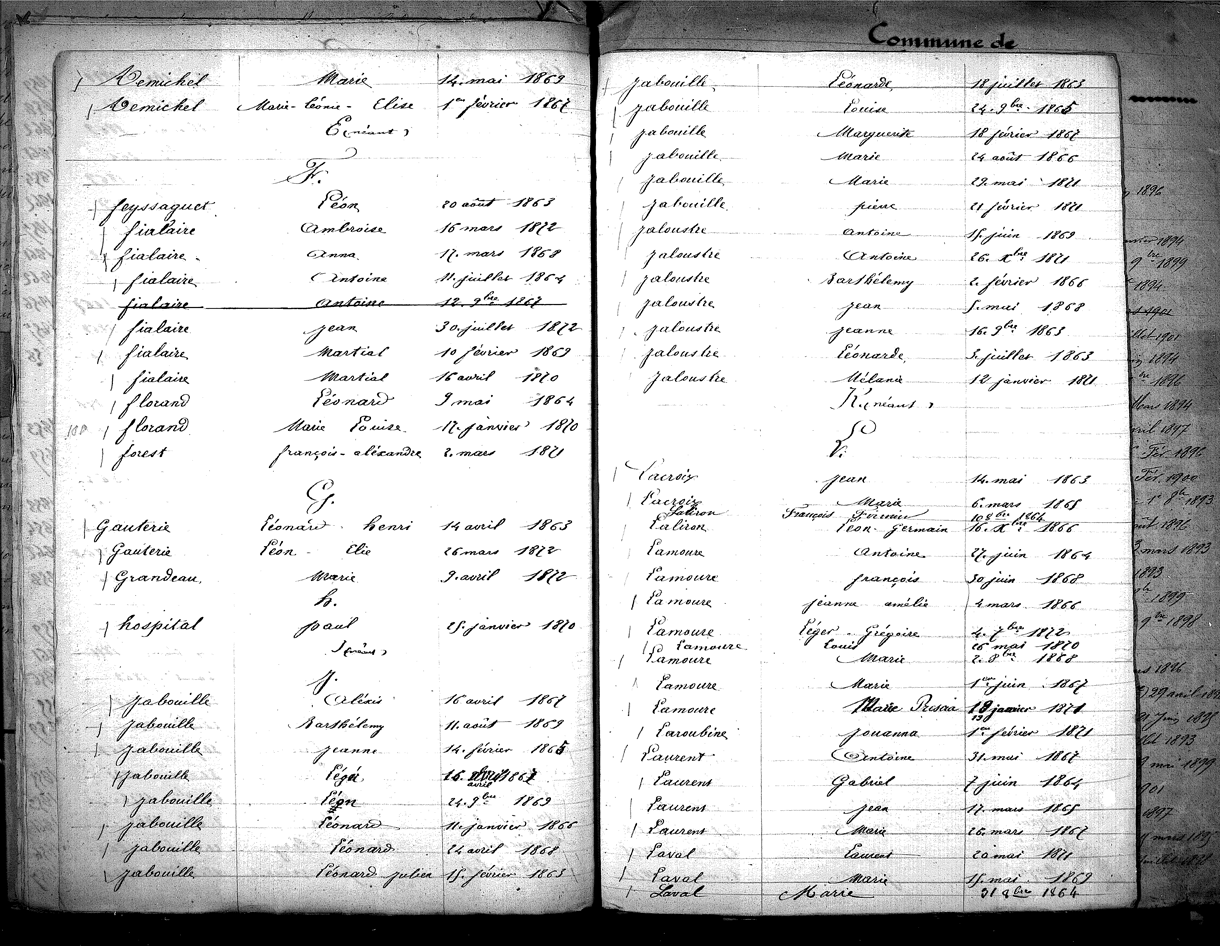 Demichel Marie 14. mai 1869
Demichel Marie-Léonie-Elise 1er février 1867
E (néant)
F.
feyssaguet Léon 20 août 1863
fialaire Ambroise 16 mars 1872
fialaire Anna 17. mars 1868
fialaire Antoine 11. juillet 1864
fialaire Antoine 12. 9bre 1867
fialaire jean 30. juillet 1872
fialaire Martial 10 février 1869
fialaire Martial 16 avril 1870
florand Léonard 9. mai 1864
florand Marie Louise 17. janvier 1870
forest françois-aléxandre 2. mars 1871
G.
Gauterie Léonard henri 14 avril 1863
Gauterie Léon-Elie 26 mars 1872
Grandeau Marie 9. avril 1872
h.
hospital paul 25. janvier 1870
I (néant)
J.
jabouille Aléxis 16 avril 1867
jabouille Barthélemy 11. août 1869
jabouille jeanne 14. février 1865
jabouille avril 1867
jabouille Léon 24. 9bre 1869
jabouille Léonard 11. janvier 1866
jabouille Léonard 24 avril 1868
jabouille Léonard julien 15. février 1863
Commune de
jabouille Léonarde 18 juillet 1863
jabouille Louise 24. 9bre 1865
jabouille Marguerite 18 février 1867
jabouille Marie 24 août 1866
jabouille Marie 29. mai 1871
jabouille pierre 21 février 1871
jaloustre Antoine 15. juin 1869
jaloustre Antoine 26. Xbre 1871
jaloustre Barthélemy 2. février 1866
jaloustre jean 5. mai 1868
jaloustre jeanne 16. 9bre 1863
jaloustre Léonarde 3. juillet 1863
jaloustre Mélanie 12 janvier 1871
K. (néant)
L.
Lacroix jean 14. mai 1863
Lacroix Marie 6. mars 1865
Laliron François Firmin 10 8bre 1864
Laliron Léon-Germain 16. Xbre 1866
Lamoure Antoine 27. juin 1864
Lamoure françois 30 juin 1868
Lamoure jeanne amélie 4 mars 1866
Lamoure Léger-Grégoire 4. 7bre 1872
Lamoure Louis 26 mai 1870
Lamoure Marie 2. 8bre 1868
Lamoure Marie 1er juin 1867
Lamoure Marie janvier 1871
Laroubine jouanna 1er février 1871
Laurent Antoine 31. mai 1867
Laurent Gabriel 7 juin 1864
Laurent jean 17. mars 1865
Laurent Marie 26 mars 1867
Laval Laurent 20 mai 1871
Laval Marie 15. mai 1869
Laval Marie 31 8bre 1864